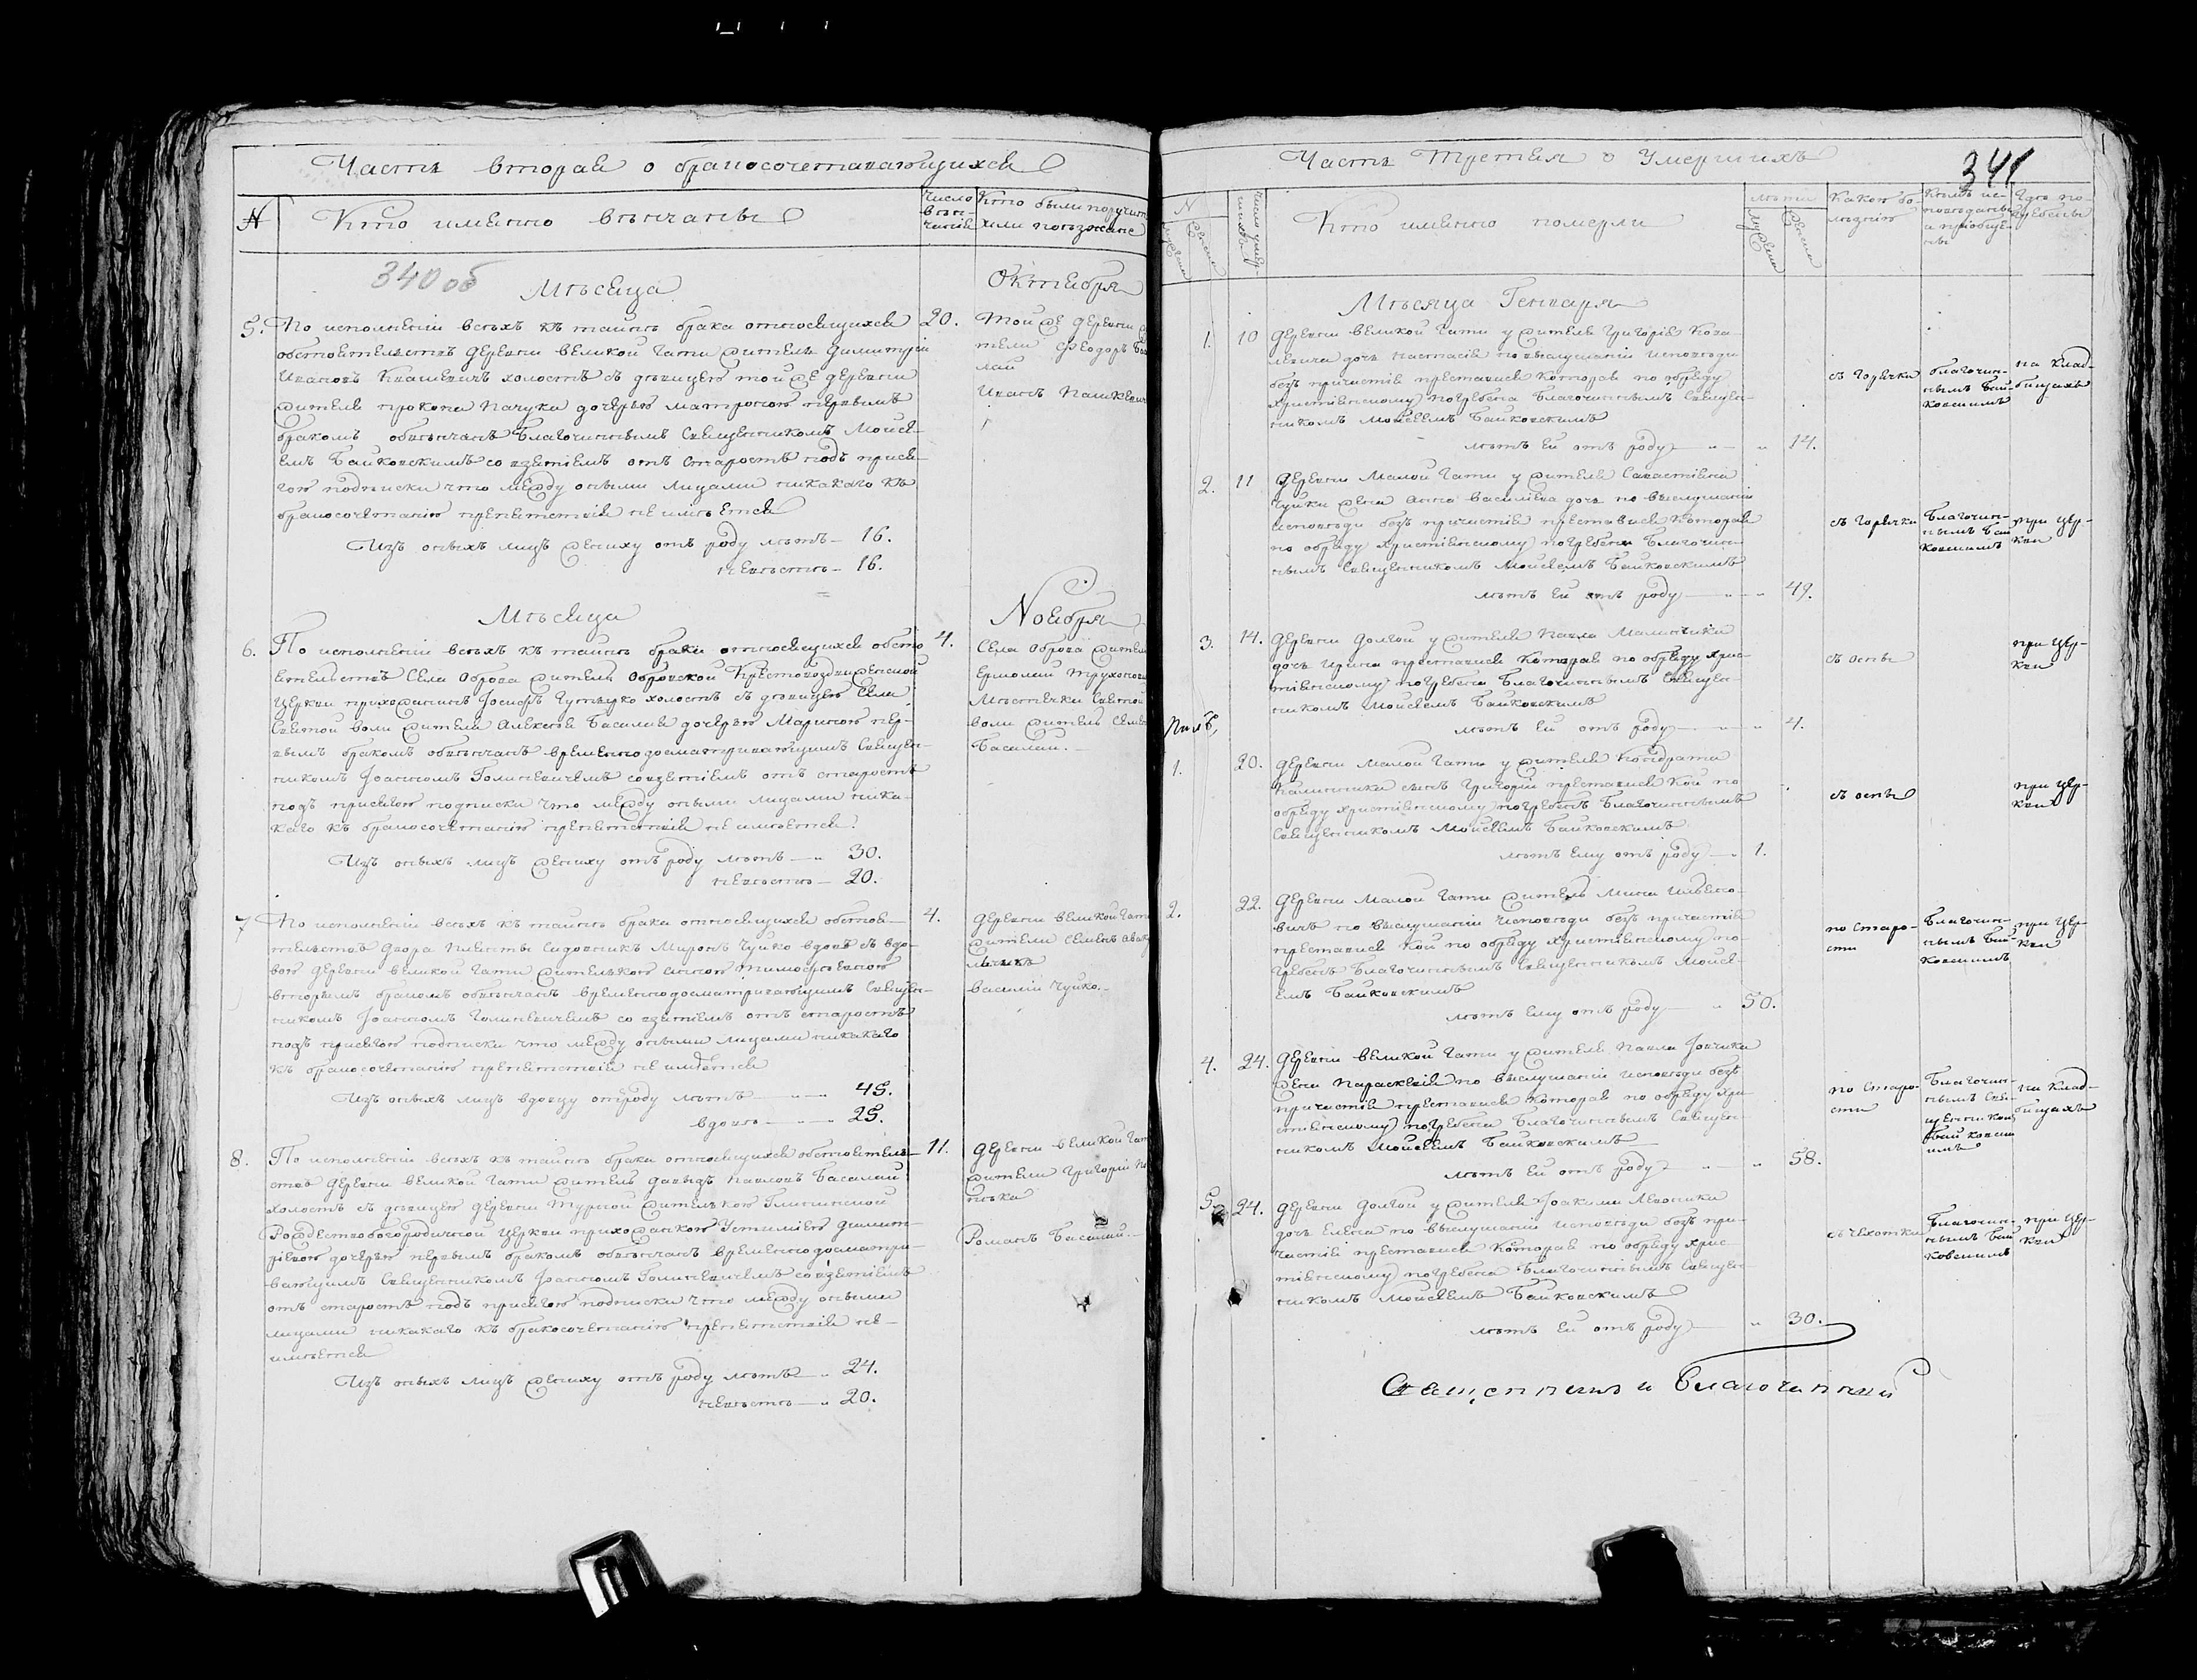 Часть вторая о бракосочетавающихся
№
Кто именно венчаны
Число
венчанiя
Кто были поручит
340 об
Мѣсяца
Октября
5. По исполненiи всѣхъ къ таинѣ брака относящихся
20.
обстоятельствъ деревни великой Гати житель Димитрiй
Ивановъ холостъ съ дѣвицею той же деревни
жителя прокопа пачука дочерью матроною первымъ
бракомъ обвѣнчанъ Благочиннымъ Священникомъ Мойсе-
емъ Байковскимъ со взятiемъ отъ старостъ подъ прися-
гою подписки что между оными лицами никакаго къ
бракосочетанiю препятствiя не имѣется
Изъ оныхъ лицъ жениху отъ роду лѣтъ — 16.
невѣстѣ — 16.
Той же деревни
тели Ѳеодоръ
Иванъ Пашкевич
Мѣсяца
Ноября
6. По исполненiи всѣхъ къ таинѣ брака относящихся обсто
4.
ятельствъ Села Оброва житель Обровской Крестовоздвиженской
Церкви прихожанинъ Iосифъ холостъ съ дѣвицею Села
Святой воли жителя Алексея Басалая дочерью Мариною пер-
вымъ бракомъ обвѣнчанъ временно досматривающимъ Священ-
никомъ Iоанномъ Голиневичемъ со взятiемъ отъ старостъ
подъ присягою подписки что между оными лицами ника-
каго къ бракосочетанiю препятствiя не имѣется.
Изъ оныхъ лицъ жениху отъ роду лѣтъ — 30.
невѣстѣ — 20.
Села Оброва жители
Ермолай
Мѣстечка Святой
воли житель Семе
Басалай.
7 По исполненiи всѣхъ къ таинѣ брака относящихся обстоя-
4.
тельствъ двора Миронъ Чуйко вдовъ съ вдо-
вою деревни великой Гати жителькою Анною Тимофѣевною
вторымъ бракомъ обвѣнчанъ временно досматривающимъ Священ-
никомъ Iоанномъ Голиневичемъ со взятiемъ отъ старостъ
подъ присягою подписки что между оными лицами никакаго
къ бракосочетанiю препятствiя не имѣется
Изъ оныхъ лицъ вдовцу отъ роду лѣтъ — 45.
вдовѣ — 25.
деревни великой Гати
жители Семенъ
василiй Чуйко.
8. По исполненiи всѣхъ къ таинѣ брака относящихся обстоятель-
11.
ствъ деревни великой Гати житель давидъ павловъ Басалай
холостъ съ дѣвицею деревни Турной жителькою Глинянской
Рождествобогородичной Церкви прихожанкою Устинiею димит-
рiевою дочерью первымъ бракомъ обвѣнчанъ временно досматри-
вающимъ Священникомъ Iоанномъ Голиневичемъ со взятiемъ
отъ старостъ подъ присягою подписки что между оными
лицами никакаго къ бракосочетанiю препятствiя не-
имѣется
Изъ оныхъ лицъ жениху отъ роду лѣтъ — 24.
невѣстѣ — 20.
деревни великой Гат
жители Григорiй
Романъ Басалай.
Часть Третiя о Умершихъ
341
№
Кто именно померли
лѣта
мужеска
женска
Какою бо-
лѣзнiю
Кѣмъ ис-
повѣданы
и прiобще-
ны
Гдѣ по-
гребены
Мѣсяца Генваря
1. 10 деревни великой Гати у жителя Григорiя Кова-
левича дочь Настасiя по выслушанiи исповѣди
безъ причастiя преставися которая по обряду
христiянскому погребена Благочиннымъ Священ-
никомъ Мойсеемъ Байковскимъ
лѣтъ ей отъ роду — 14.
съ горячки
благочин-
нымъ Бай-
ковскимъ
на клад-
бищахъ
2. 11 деревни Малой Гати у жителя Савастiяна
Чуйки жена Анна василiева дочь по выслушанiи
исповѣди безъ причастiя преставися которая
по обряду христiянскому погребена Благочин-
нымъ Священникомъ Мойсеемъ Байковскимъ
лѣтъ ей отъ роду — 49.
съ горячки
Благочин-
нымъ Бай
ковскимъ
при цер-
кви
3. 14. деревни Долгой у жителя Павла Малинчика
дочь Ирина преставися которая по обряду хрис-
тiянскому погребена Благочиннымъ Священ-
никомъ Мойсеемъ Байковскимъ
лѣтъ ей отъ роду — 4.
съ оспы
при цер-
кви
1. 20. деревни Малой Гати у жителя Кондрата
Калинника сынъ Григорiй преставися кой по
обряду христiянскому погребенъ Благочиннымъ
Священникомъ Мойсеемъ Байковскимъ
лѣтъ ему отъ роду — 1.
съ оспы
при цер-
кви
2. 22. деревни Малой Гати житель Мина
вичъ по выслушанiи исповѣди безъ причастiя
преставися кой по обряду христiянскому по-
гребенъ Благочиннымъ Священникомъ Мойсе-
емъ Байковскимъ
лѣтъ ему отъ роду — 50.
по старо-
сти
Благочин-
нымъ Бай-
ковскимъ
при цер-
кви
4. 24. деревни великой Гати у жителя Павла
жена Параскевiя по выслушанiи исповѣди безъ
причастiя преставися которая по обряду хри-
стiянскому погребена Благочиннымъ Священ-
никомъ Мойсеемъ Байковскимъ
лѣтъ ей отъ роду — 58.
по старо-
сти
Благочин-
нымъ Свя-
щенником
Байковск
имъ
на клад-
бищахъ
5. 24. деревни Долгой у жителя Iоакима Левоника
дочь Елена по выслушанiи исповѣди безъ при-
частiя преставися которая по обряду хрис-
тiянскому погребена Благочиннымъ Священ-
никомъ Мойсеемъ Байковскимъ
лѣтъ ей отъ роду — 30.
съ чахотки
Благочин-
нымъ Бай
ковскимъ
при цер-
кви
Священникъ и Благочинный